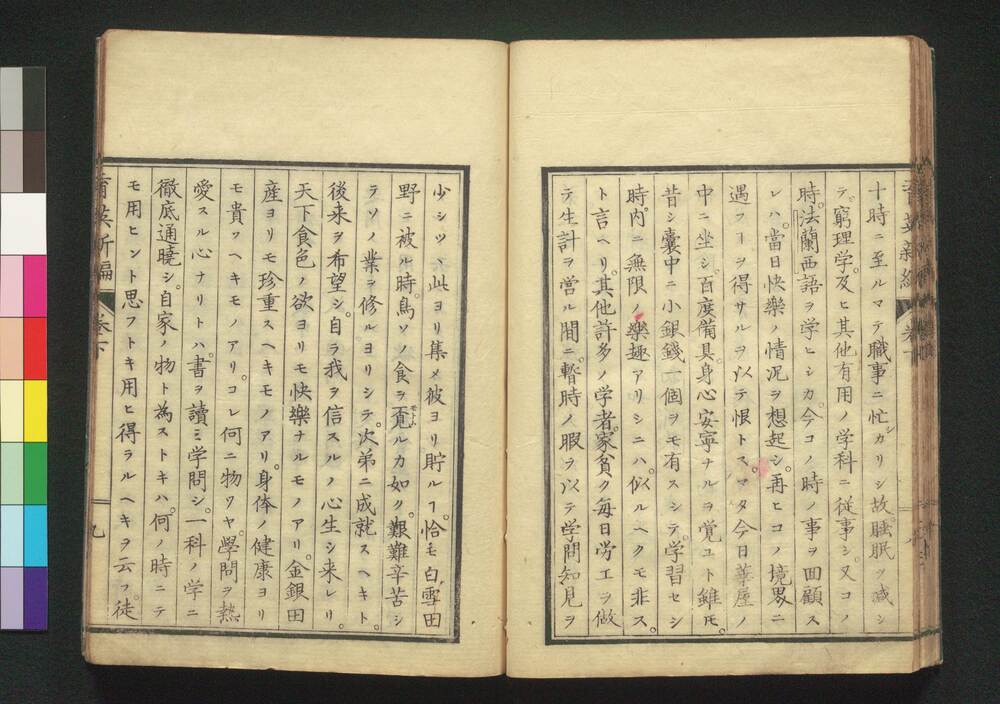 十時ニ至ルマテ職事ニ忙カリシ故睡眠ヲ减シ
テ。窮理学。及ヒ其他有用ノ学科ニ從事シ。又コノ
時。法蘭西語ヲ学ヒシカ。今コノ時ノ事ヲ回顧ス
レハ。當日快樂ノ情况ヲ想起シ。再ヒコノ境界ニ
遇フヿヲ得サルヲ以テ恨トス。マタ今日華屋ノ
中ニ坐シ。百度備具。身心安寧ナルヲ覚ユト雖モ。
昔シ囊中ニ小銀錢一個ヲモ有スシテ。学習セシ
時。内ニ無限ノ樂趣アリシニハ。似ルヘクモ非ス。
ト言ヘリ。其他許多ノ学者。家貧ク毎日労工ヲ做
テ生計ヲ營ル間ニ。暫時ノ暇ヲ以テ学問知見ヲ
少シツヽ此ヨリ集メ彼ヨリ貯ルフ。恰モ白雪田
野ニ被ル時。鳥ソノ食ヲ覓ルカ如ク。艱難辛苦シ
テソノ業ヲ修ルヨリシテ。次第ニ成就スヘキト。
後来ヲ希望シ。自ラ我ヲ信スルノ心生シ来レリ。
天下食色ノ欲ヨリモ快樂ナルモノアリ。金銀田
産ヨリモ珍重スヘキモノアリ。身体ノ健康ヨリ
モ貴フヘキモノアリ。コレ何ニ物ソヤ。學問ヲ熱
愛スル心ナリトハ。書ヲ讀ミ学問シ。一科ノ学ニ
徹底通曉シ。自家ノ物ト為ストキハ。何ノ時ニテ
モ用ヒント思フトキ用ヒ得ラルヘキヲ云フ。徒
育英新編
卷下
九